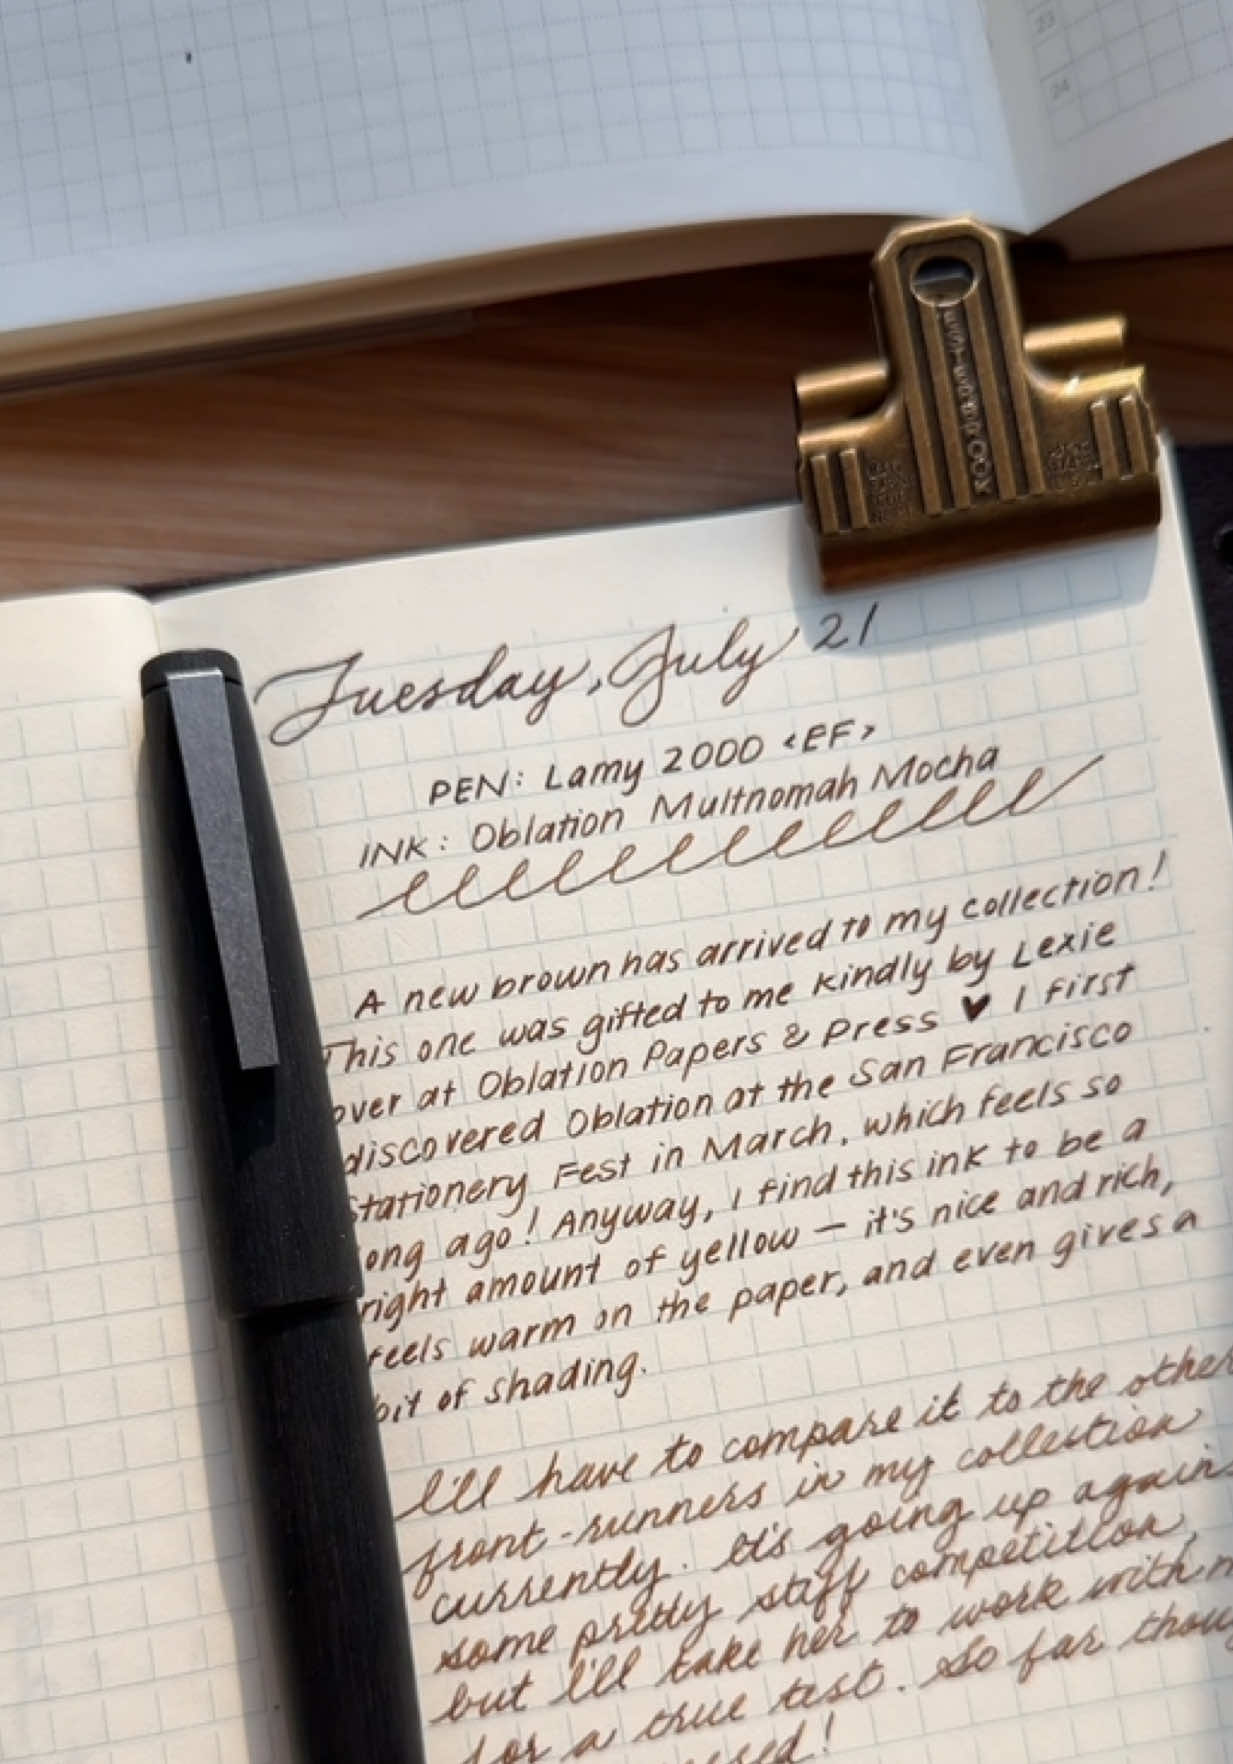 23
24
ESTERBROOK
Tuesday, July 21
PEN: Lamy 2000 <EF>
INK: Oblation Multnomah Mocha
A new brown has arrived to my collection!
This one was gifted to me kindly by Lexie
over at Oblation Papers & Press ♥ I first
discovered Oblation at the San Francisco
Stationery Fest in March, which feels so
long ago! Anyway, I find this ink to be a
right amount of yellow — it's nice and rich,
feels warm on the paper, and even gives a
bit of shading.
I'll have to compare it to the other
front-runners in my collection
currently. It's going up against
some pretty stiff competition,
but I'll take her to work with
for a true test. So far